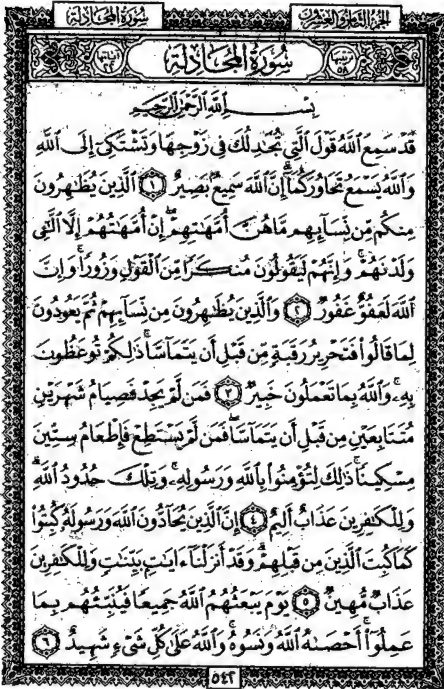 الجزء الثامن والعشرون سُورَةُ المُجَادلة
سُورَةُ المُجَادلة
بِسْمِ ٱللَّهِ ٱلرَّحْمَٰنِ ٱلرَّحِيمِ
قَدْ سَمِعَ ٱللَّهُ قَوْلَ ٱلَّتِي تُجَٰدِلُكَ فِي زَوْجِهَا وَتَشْتَكِيٓ إِلَى ٱللَّهِ
وَٱللَّهُ يَسْمَعُ تَحَاوُرَكُمَآ ۚ إِنَّ ٱللَّهَ سَمِيعٌۢ بَصِيرٌ ١ ٱلَّذِينَ يُظَٰهِرُونَ
مِنكُم مِّن نِّسَآئِهِم مَّا هُنَّ أُمَّهَٰتِهِمْ ۖ إِنْ أُمَّهَٰتُهُمْ إِلَّا ٱلَّٰٓـِٔي
وَلَدْنَهُمْ ۚ وَإِنَّهُمْ لَيَقُولُونَ مُنكَرًا مِّنَ ٱلْقَوْلِ وَزُورًا ۚ وَإِنَّ
ٱللَّهَ لَعَفُوٌّ غَفُورٌ ٢ وَٱلَّذِينَ يُظَٰهِرُونَ مِن نِّسَآئِهِمْ ثُمَّ يَعُودُونَ
لِمَا قَالُوا۟ فَتَحْرِيرُ رَقَبَةٍ مِّن قَبْلِ أَن يَتَمَآسَّا ۚ ذَٰلِكُمْ تُوعَظُونَ
بِهِۦ ۚ وَٱللَّهُ بِمَا تَعْمَلُونَ خَبِيرٌ ٣ فَمَن لَّمْ يَجِدْ فَصِيَامُ شَهْرَيْنِ
مُتَتَابِعَيْنِ مِن قَبْلِ أَن يَتَمَآسَّا ۖ فَمَن لَّمْ يَسْتَطِعْ فَإِطْعَامُ سِتِّينَ
مِسْكِينًا ۚ ذَٰلِكَ لِتُؤْمِنُوا۟ بِٱللَّهِ وَرَسُولِهِۦ ۚ وَتِلْكَ حُدُودُ ٱللَّهِ ۗ
وَلِلْكَٰفِرِينَ عَذَابٌ أَلِيمٌ ٤ إِنَّ ٱلَّذِينَ يُحَآدُّونَ ٱللَّهَ وَرَسُولَهُۥ كُبِتُوا۟
كَمَا كُبِتَ ٱلَّذِينَ مِن قَبْلِهِمْ ۚ وَقَدْ أَنزَلْنَآ ءَايَٰتٍۭ بَيِّنَٰتٍ ۚ وَلِلْكَٰفِرِينَ
عَذَابٌ مُّهِينٌ ٥ يَوْمَ يَبْعَثُهُمُ ٱللَّهُ جَمِيعًا فَيُنَبِّئُهُم بِمَا
عَمِلُوٓا۟ ۚ أَحْصَىٰهُ ٱللَّهُ وَنَسُوهُ ۚ وَٱللَّهُ عَلَىٰ كُلِّ شَىْءٍ شَهِيدٌ ٦
٥٤٢